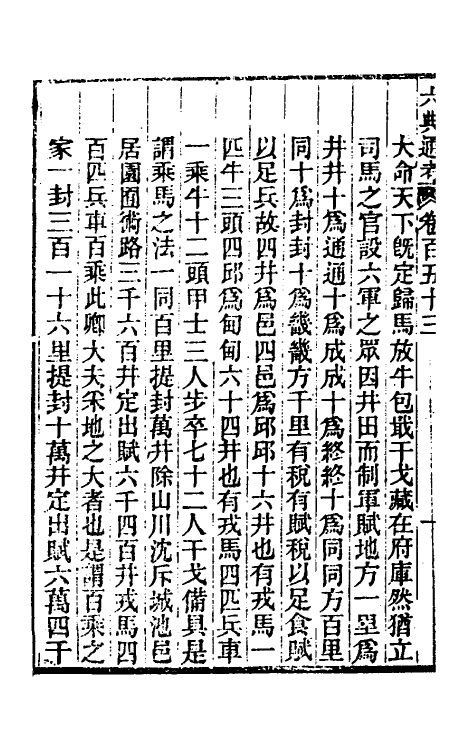 六典通考　卷百五十三　一
大命天下旣定歸馬放牛包戢干戈藏在府庫然猶立
司馬之官設六軍之眾因井田而制軍賦地方一里爲
井井十爲通通十爲成成十爲終終十爲同同方百里
同十爲封封十爲畿畿方千里有稅有賦稅以足食賦
以足兵故四井爲邑四邑爲邱邱十六井也有戎馬一
匹牛三頭四邱爲甸甸六十四井也有戎馬四匹兵車
一乘牛十二頭甲士三人步卒七十二人干戈備具是
謂乘馬之法一同百里提封萬井除山川沈斥城池邑
居園囿術路三千六百井定出賦六千四百井戎馬四
百匹兵車百乘此卿大夫采地之大者也是謂百乘之
家一封三百一十六里提封十萬井定出賦六萬四千